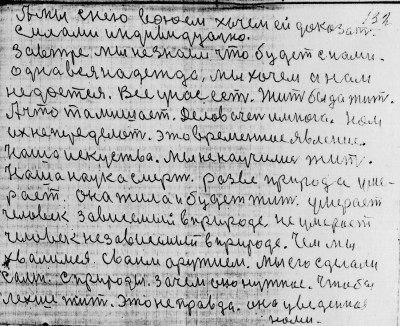 А мы с него воюем хочем ей доказат. 132
Силами индивидуално.
Завтре. мы незнаем что будет с нами.
одна вся надежда, мы хочем а нам
недоется. Все у нас ест. Жит бы да жит.
А что то мишает. Деловачеи много. Нам
их непеределат. Это временное явление.
Наша искуства. Мы не научились жит.
Наша наука смерт. разве природа уме-
рает. она жила и будет жит. умерает
человек зависемий в природе. не умерает
человек не зависемий в природе. Чем мы
хвалимся. Своим оружием. Мы его сделали
сами. с природы. зачем оно нужное. Чтобы
лехше жит. Это не правда. она уведенная
нами.